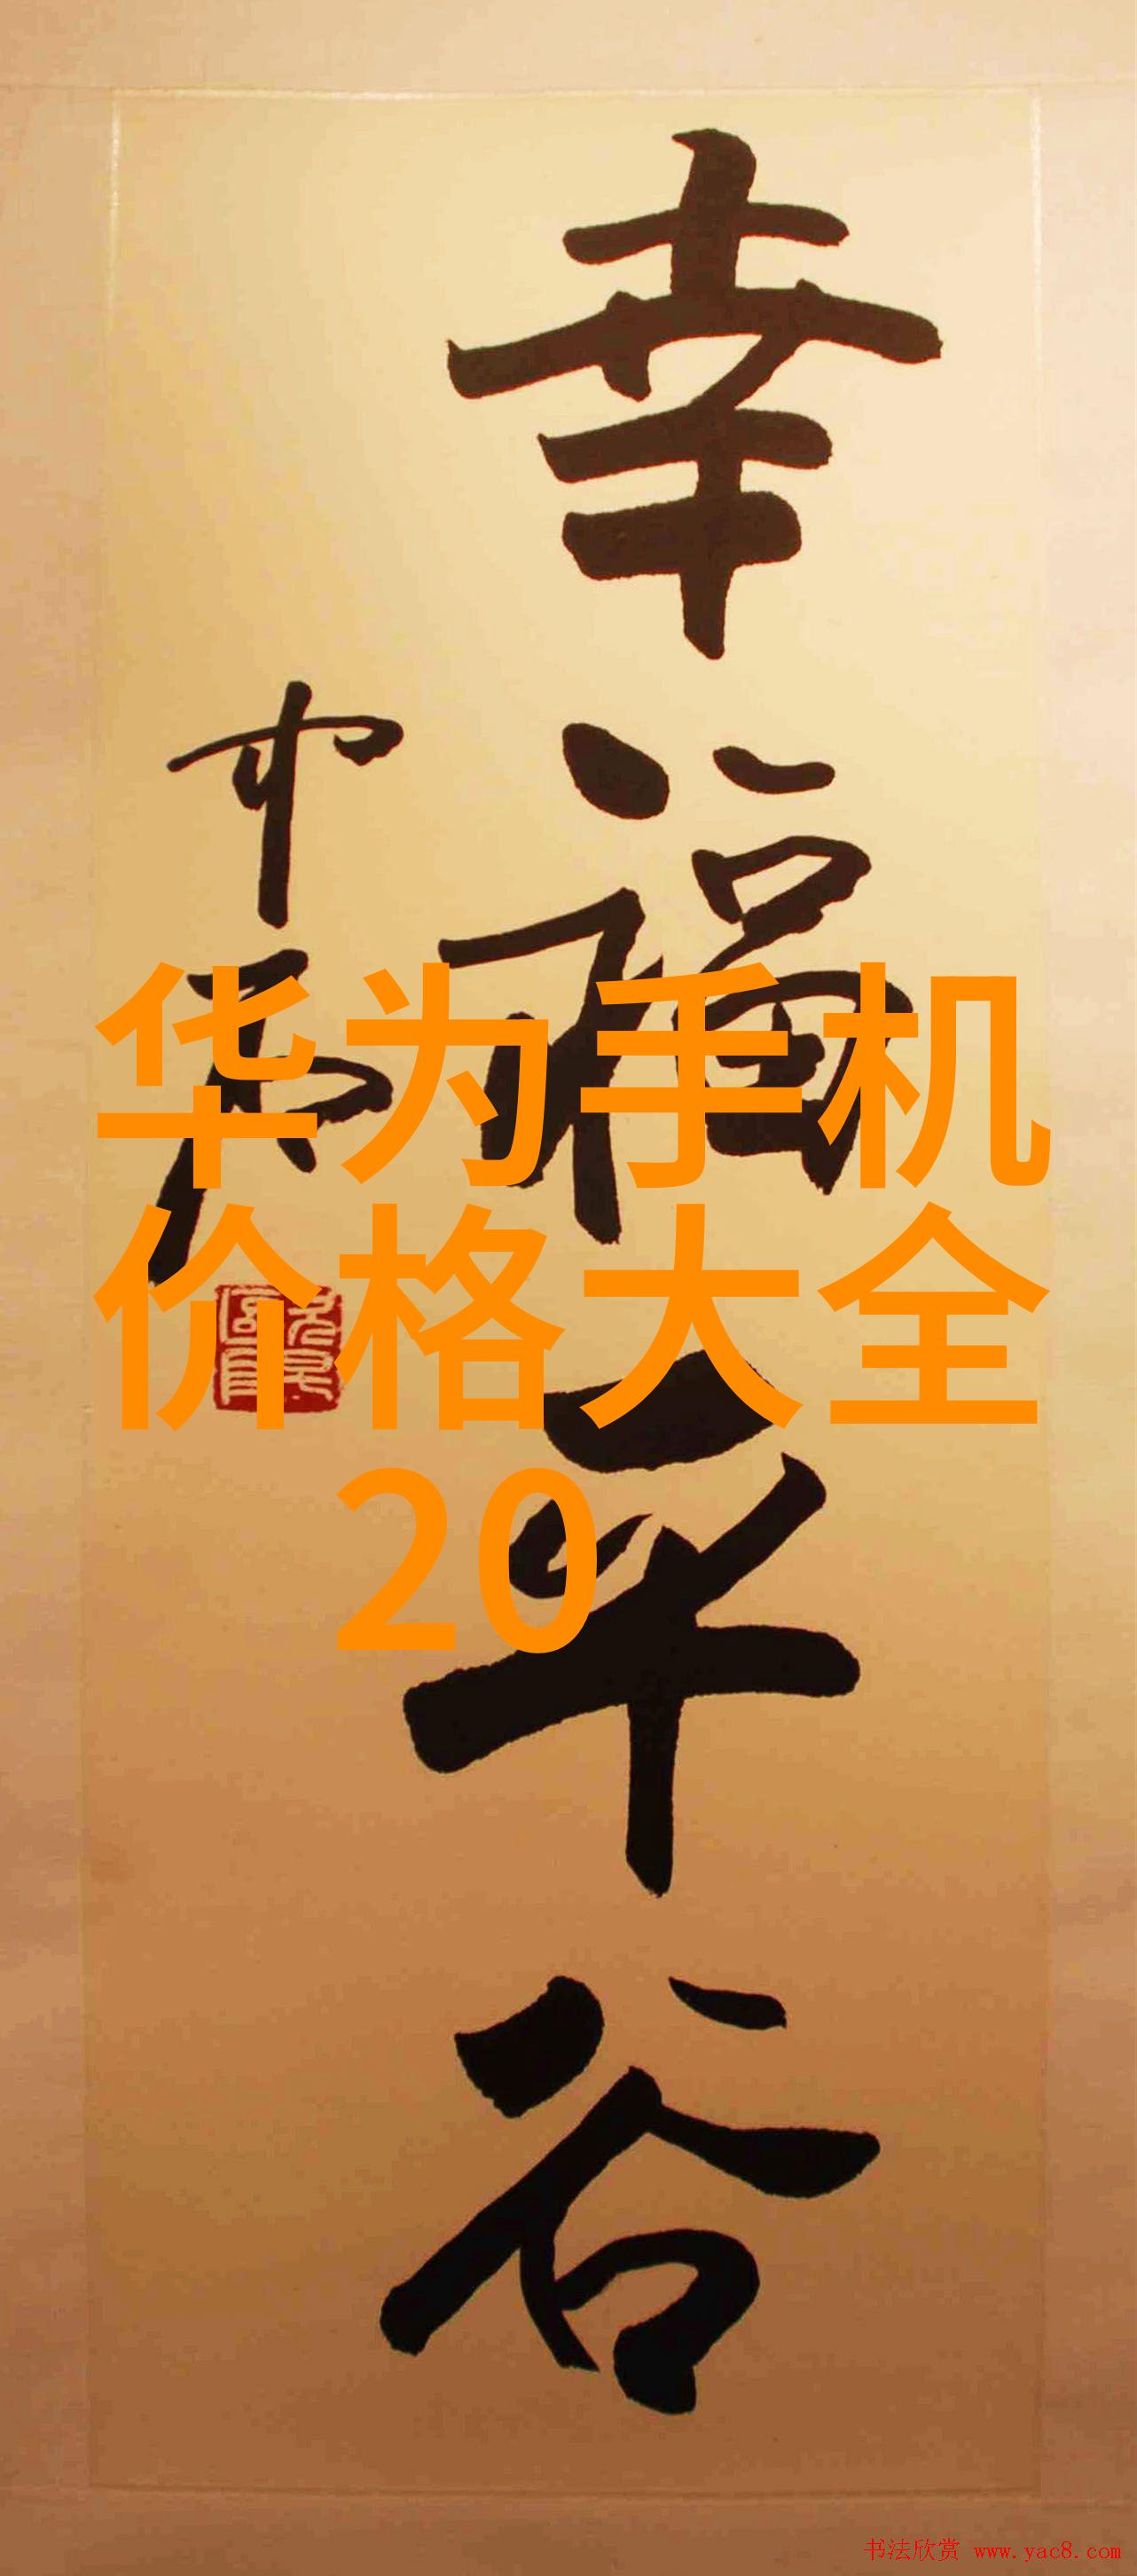 幸福平谷
华为手机
价格大全
20
书法欣赏 www.yac8.com